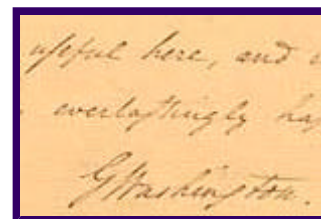 useful here, and
everlastingly hap
GWashington.